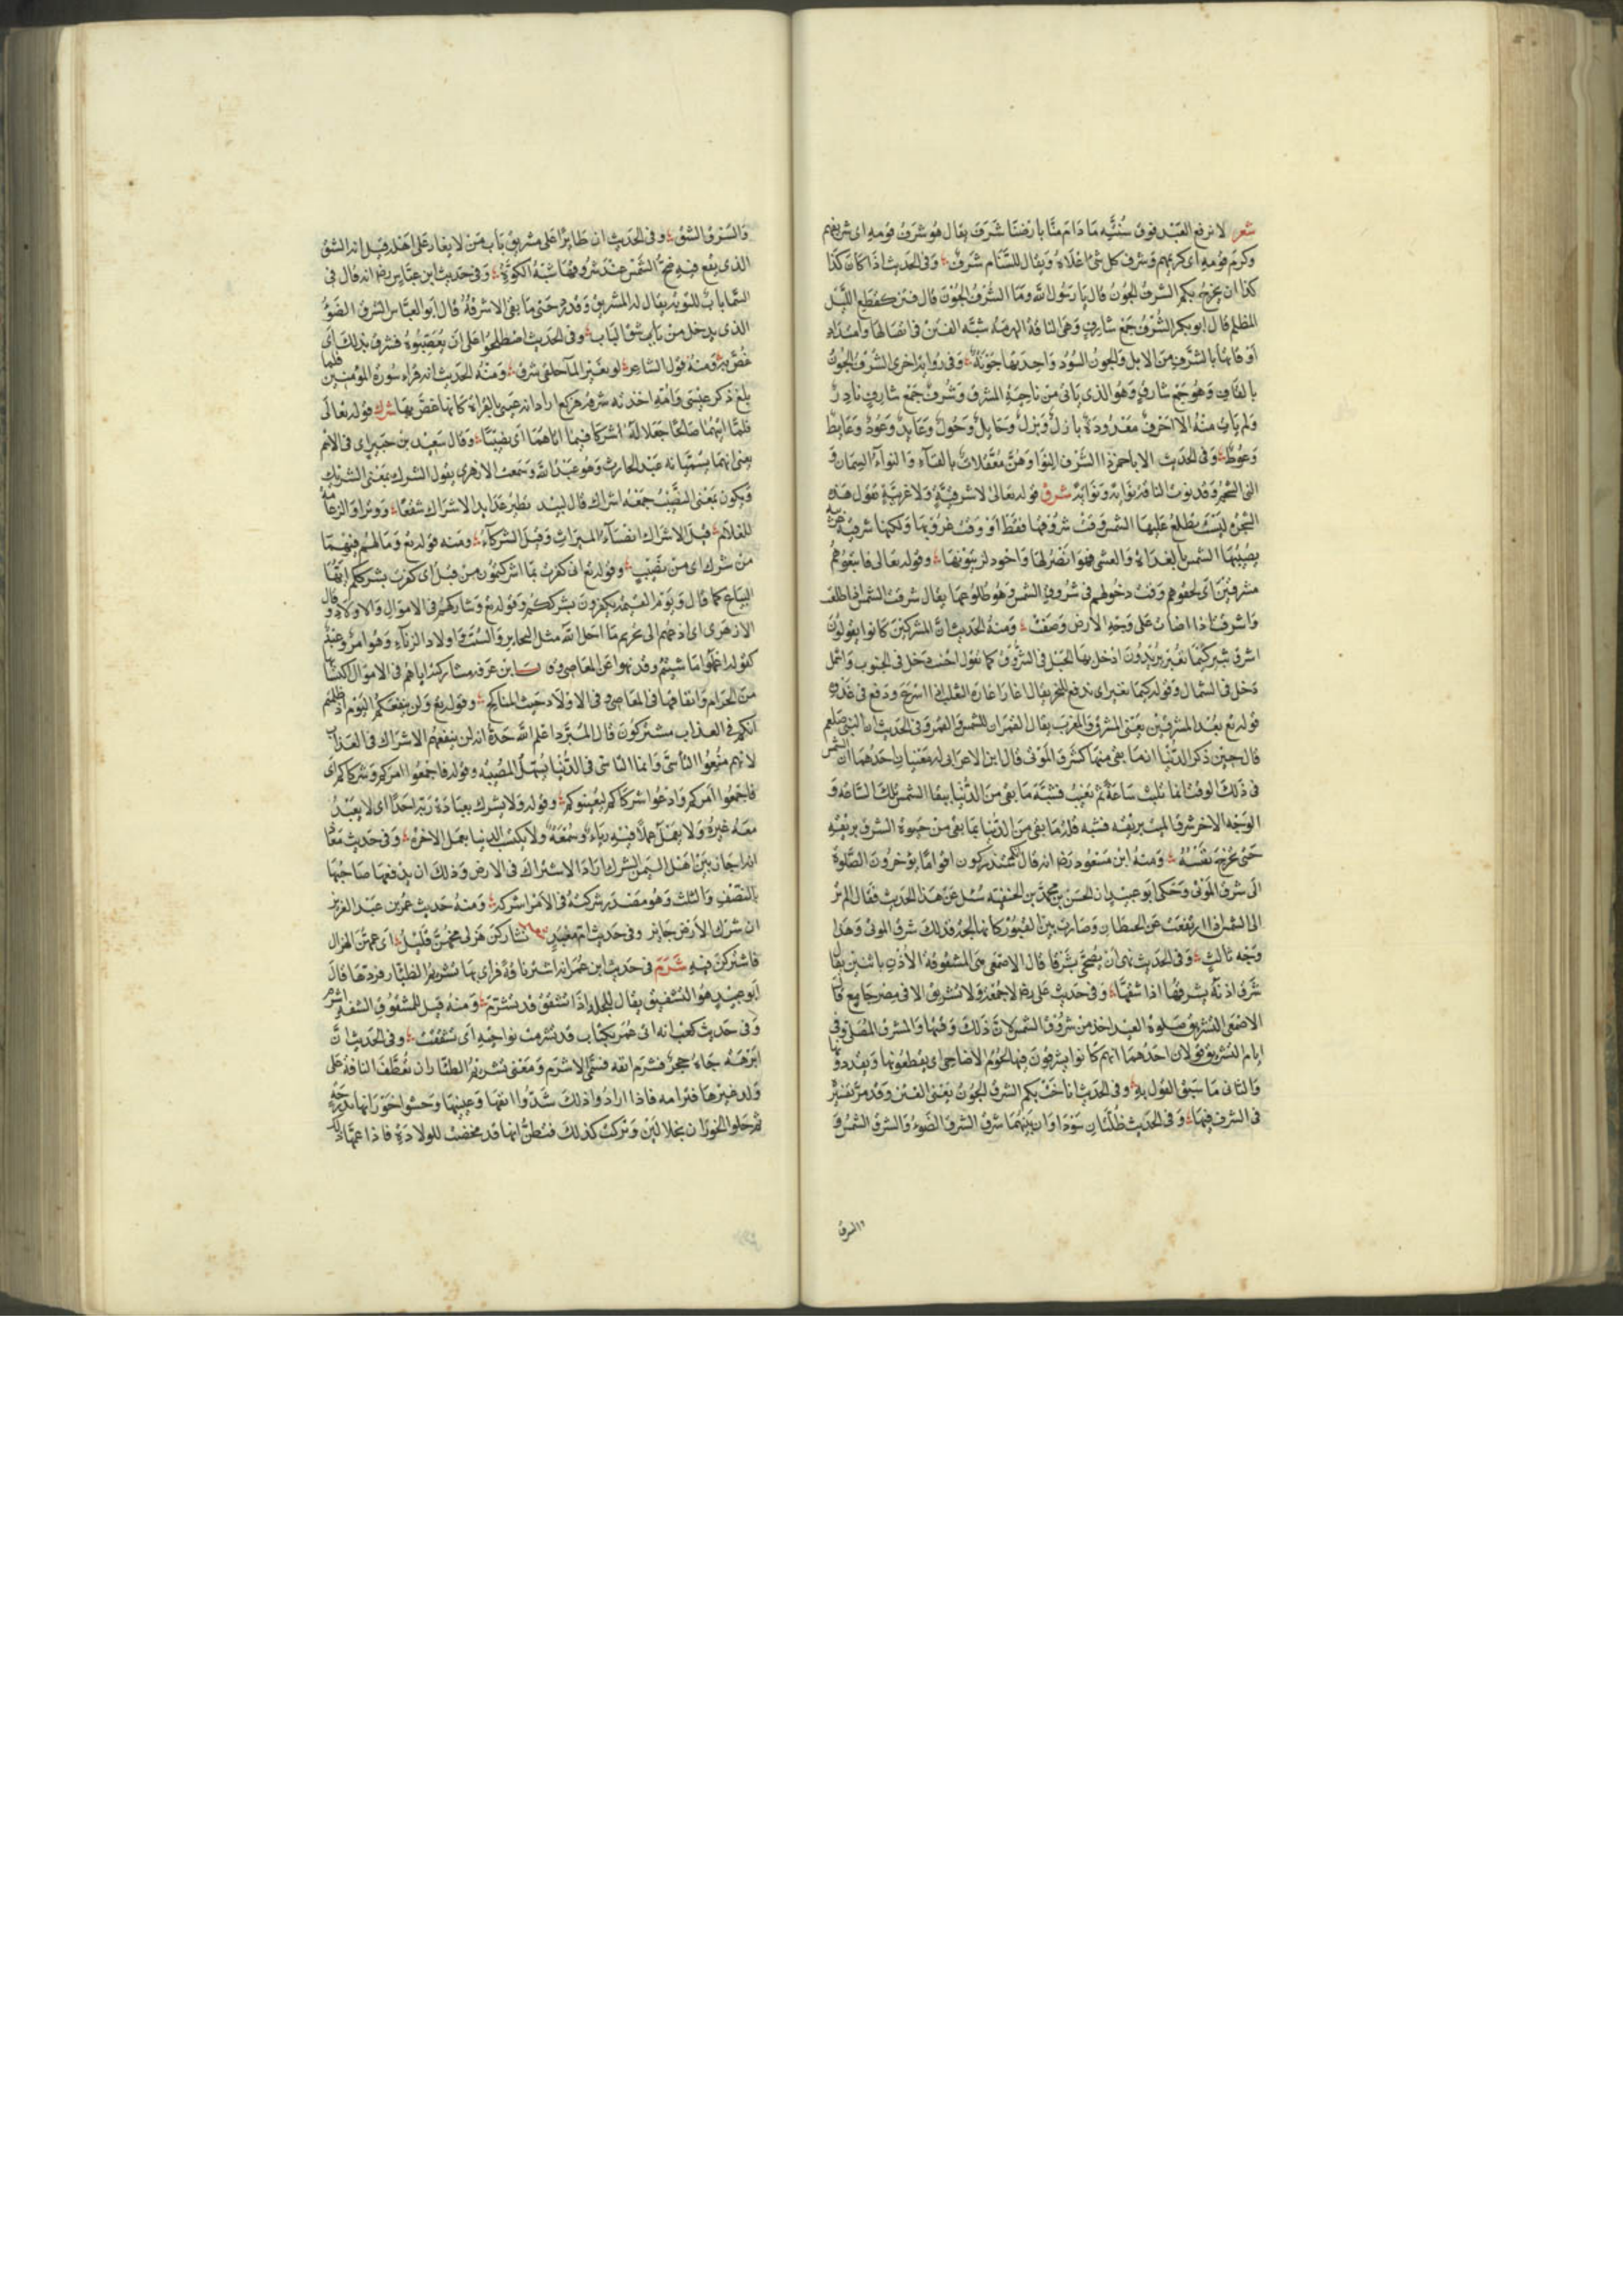 شعر لا نرفع العبد فوق سنته ما دام منا بأرضنا شرف يقال هو شرف قومه اى شريفهم
وكرم قومه أى كريمهم وشرف كل شئ اعلاه ويقال للسنام شرف وفى الحديث اذا كان كذا
كذا ان يخرج بكم الشرف الجون قال يا رسول الله وما الشرف الجون قال فتن كقطع الليل
المظلم قال ابو بكر الشرف جمع شارف وهى الناقة الهرمة شبه الفتن فى اتصالها وامتداد
أوقاتها بالشرف من الابل والجون السود واحدتها جونة وفى رواية اخرى الشرق الجون
بالقاف وهو جمع شارق وهو الذى ياتى من ناحية المشرق وشرف جمع شارف نادر
ولم يات منه الا احرف معدودة بازل وبزل وحايل وحول وعايد وعود وعايط
وعوط وفى الحديث الا يا حمز ذا الشرف النوا وهن معقلات بالفنآء والنوآء السمان و
النى الشحم وقد نوت الناقة نواية ونواية شرق قوله تعالى لا شرقية ولا غربية يقول هذه
الشجرة ليست تطلع عليها الشمس وقت شروقها فقط أو وقت غروبها ولكنها شرقية غربية
يصيبها الشمس بالغداة والعشى فهوا نضر لها واجود لزيتونها وقوله تعالى فاتبعوهم
مشرقين أى لحقوهم وقت دخولهم فى شروق الشمس وهو طلوعها يقال شرقت الشمس اذا طلعت
واشرقت اذا اضات على وجه الارض وصفت ومنه الحديث ان المشركين كانوا يقولون
اشرق ثبير كيما نغير يريدون ادخل ايها الجبل فى الشروق كما تقول اجنب دخل فى الجنوب واشمل
دخل فى الشمال وقوله كيما نغير اى ندفع للنحر يقال اغار اغارة الثعلب اى اسرع ودفع فى عدوه
قوله تع بعد المشرقين يعنى المشرق والمغرب يقال القمران للشمس والقمر وفى الحديث ان النبى صلعم
قال حين ذكر الدنيا انما بقى منها كشرق الموتى قال ابن الاعرابى له معنيان احدهما ان الشمس
فى ذلك الوقت انما تلبث ساعة ثم تغيب فشبه ما بقى من الدنيا ببقا الشمس تلك الساعة و
الوجه الاخر شرق الميت بريقه فشبه قلة ما بقى من الدنيا بما بقى من حيوة الشرق بريقه
حتى تخرج نفسه ومنه ابن مسعود رضه انه قال لعلكم ستدركون اقواما يؤخرون الصلوة
الى شرق الموتى وحكى ابو عبيد ان الحسن بن محمد بن الحنفية سئل عن هذا الحديث فقال الم تر
الى الشمس اذا ارتفعت عن الحيطان وصارت بين القبور كانها لجة فذلك شرق الموتى وهذا
وجه ثالث وفى الحديث نهى ان يضحى بشرقا قال الاصمعى هى المشقوقة الأذن باثنين يقال
شرق اذنه يشرقها اذا شقها وفى حديث على رضه لا جمعة ولا تشريق الا فى مصر جامع قال
الاصمعى التشريق صلوة العيد اخذ من شروق الشمس لان ذلك وقتها والمشرق المصلى وفى
ايام التشريق قولان احدهما انهم كانوا يشرقون فيها لحوم الاضاحى اى يقطعونها ويقددونها
والثانى ما سبق القول به وفى الحديث اناخت بكم الشرق الجون يعنى الفتن وقد مر تفسيره
فى الشرف فيما وفى الحديث ظلتان سوداوان بينهما شرق الشرق الضوء والشرق الشمس و
والشرق
والشرق الشق وفى الحديث ان طايرا على مشريق باب من لا يغار على اهله قيل انه الشق
الذى يقع فيه ضح الشمس عند شروقها شبه الكوة وفى حديث ابن عباس رضه انه قال فى
السما باب للتوبة يقال له المشريق وقد رد حتى ما بقى الا شرقه قال ابو العباس الشرق الضو
الذى يدخل من باب شق الباب وفى الحديث اصطلحوا على ان يعصبوه فشرق بذلك أى
غص به ومنه قول الشاعر لو بغير المآ حلقى شرق ومنه الحديث انه قراء سورة المؤمنين فلما
بلغ ذكر عيسى وامه اخذته شرقة فركع اراد انه عيى بالقراة كانها غص بها شرك قوله تعالى
فلما اتيهما صالحا جعلا له شركا فيما اتاهما اى نصيبا وقال سعيد بن جبير اى فى الاسم
يعنى انهما يسميانه عبد الحارث وهو عبد الله وسمعت الازهرى يقول الشرك بمعنى الشريك
ويكون بمعنى النصيب جمعه اشراك قال لبيد تطير عدايد الاشراك شفعا ووترا والزعامة
للغلام قيل الاشراك انصبآء الميراث وقيل الشركآء ومنه قوله تع وما لهم فيهما
من شرك اى من نصيب وقوله تع انى كفرت بما اشركتمون من قبل اى كفرت بشرككم ايها
التباع كما قال ويوم القيمة يكفرون بشرككم وقوله تع وشاركهم فى الاموال والاولاد وقال
الازهرى اى ادعهم الى تحريم ما احل الله مثل البحاير والسيب واولاد الزنآء وهو امر وعيد
كقوله اعملوا ما شيتم وقد نهوا عن المعاصى ابن عرفه مشاركته اياهم فى الاموال اكتسابها
من الحرام وانفاقها فى المعاصى وفى الاولاد خبث المناكح وقوله تع ولن ينفعكم اليوم اذ ظلمتم
انكم فى العذاب مشتركون قال المبرد اعلم الله حده انه لن ينفعهم الاشراك فى العذاب
لانهم منعوا التأسى وانما التأسى فى الدنيا يسهل المصيبه وقوله فاجمعوا امركم وشركاكم أى
فاجمعوا امركم وادعوا شركاكم ليعينوكم وقوله ولا يشرك بعبادة ربه احدا اى لا يعبد
معه غيره ولا يعمل عملا فيه رياء وسمعة ولا يكتب الدنيا بعمل الاخرة وفى حديث معاذ
انه اجاز بين اهل اليمن الشرك اراد الاشتراك فى الارض وذلك ان يدفعها صاحبها
بالنصف والثلث وهو مصدر شركته فى الامر اشركه ومنه حديث عمر بن عبد العزيز
ان شرك الارض جايز وفى حديث ام معبد تشاركن هزلى مخهن قليل اى عمهن الهزال
فاشتركن فيه شرم فى حديث ابن عمر انه اشترى ناقة فراى بها تشريم الظئار فردها قال
ابو عبيد هو التشقيق يقال للجلد اذا تشقق قد تشرم ومنه قيل للمشقوق الشفة اشرم
وفى حديث كعب انه اتى عمر بكتاب قد تشرمت نواحيه أى تشققت وفى الحديث ان
ابرهه جاءه حجر فشرم انفه فسمى الاشرم ومعنى تشريم الظئار ان تعطف الناقة على
ولد غيرها فترامه فاذا ارادوا ذلك شدوا انفها وعينيها وحشوا خورانها بدرجة
ثم خلوا الخوران بخلالين وتركت كذلك فتظن انها قد مخضت للولادة فاذا غمها ذلك